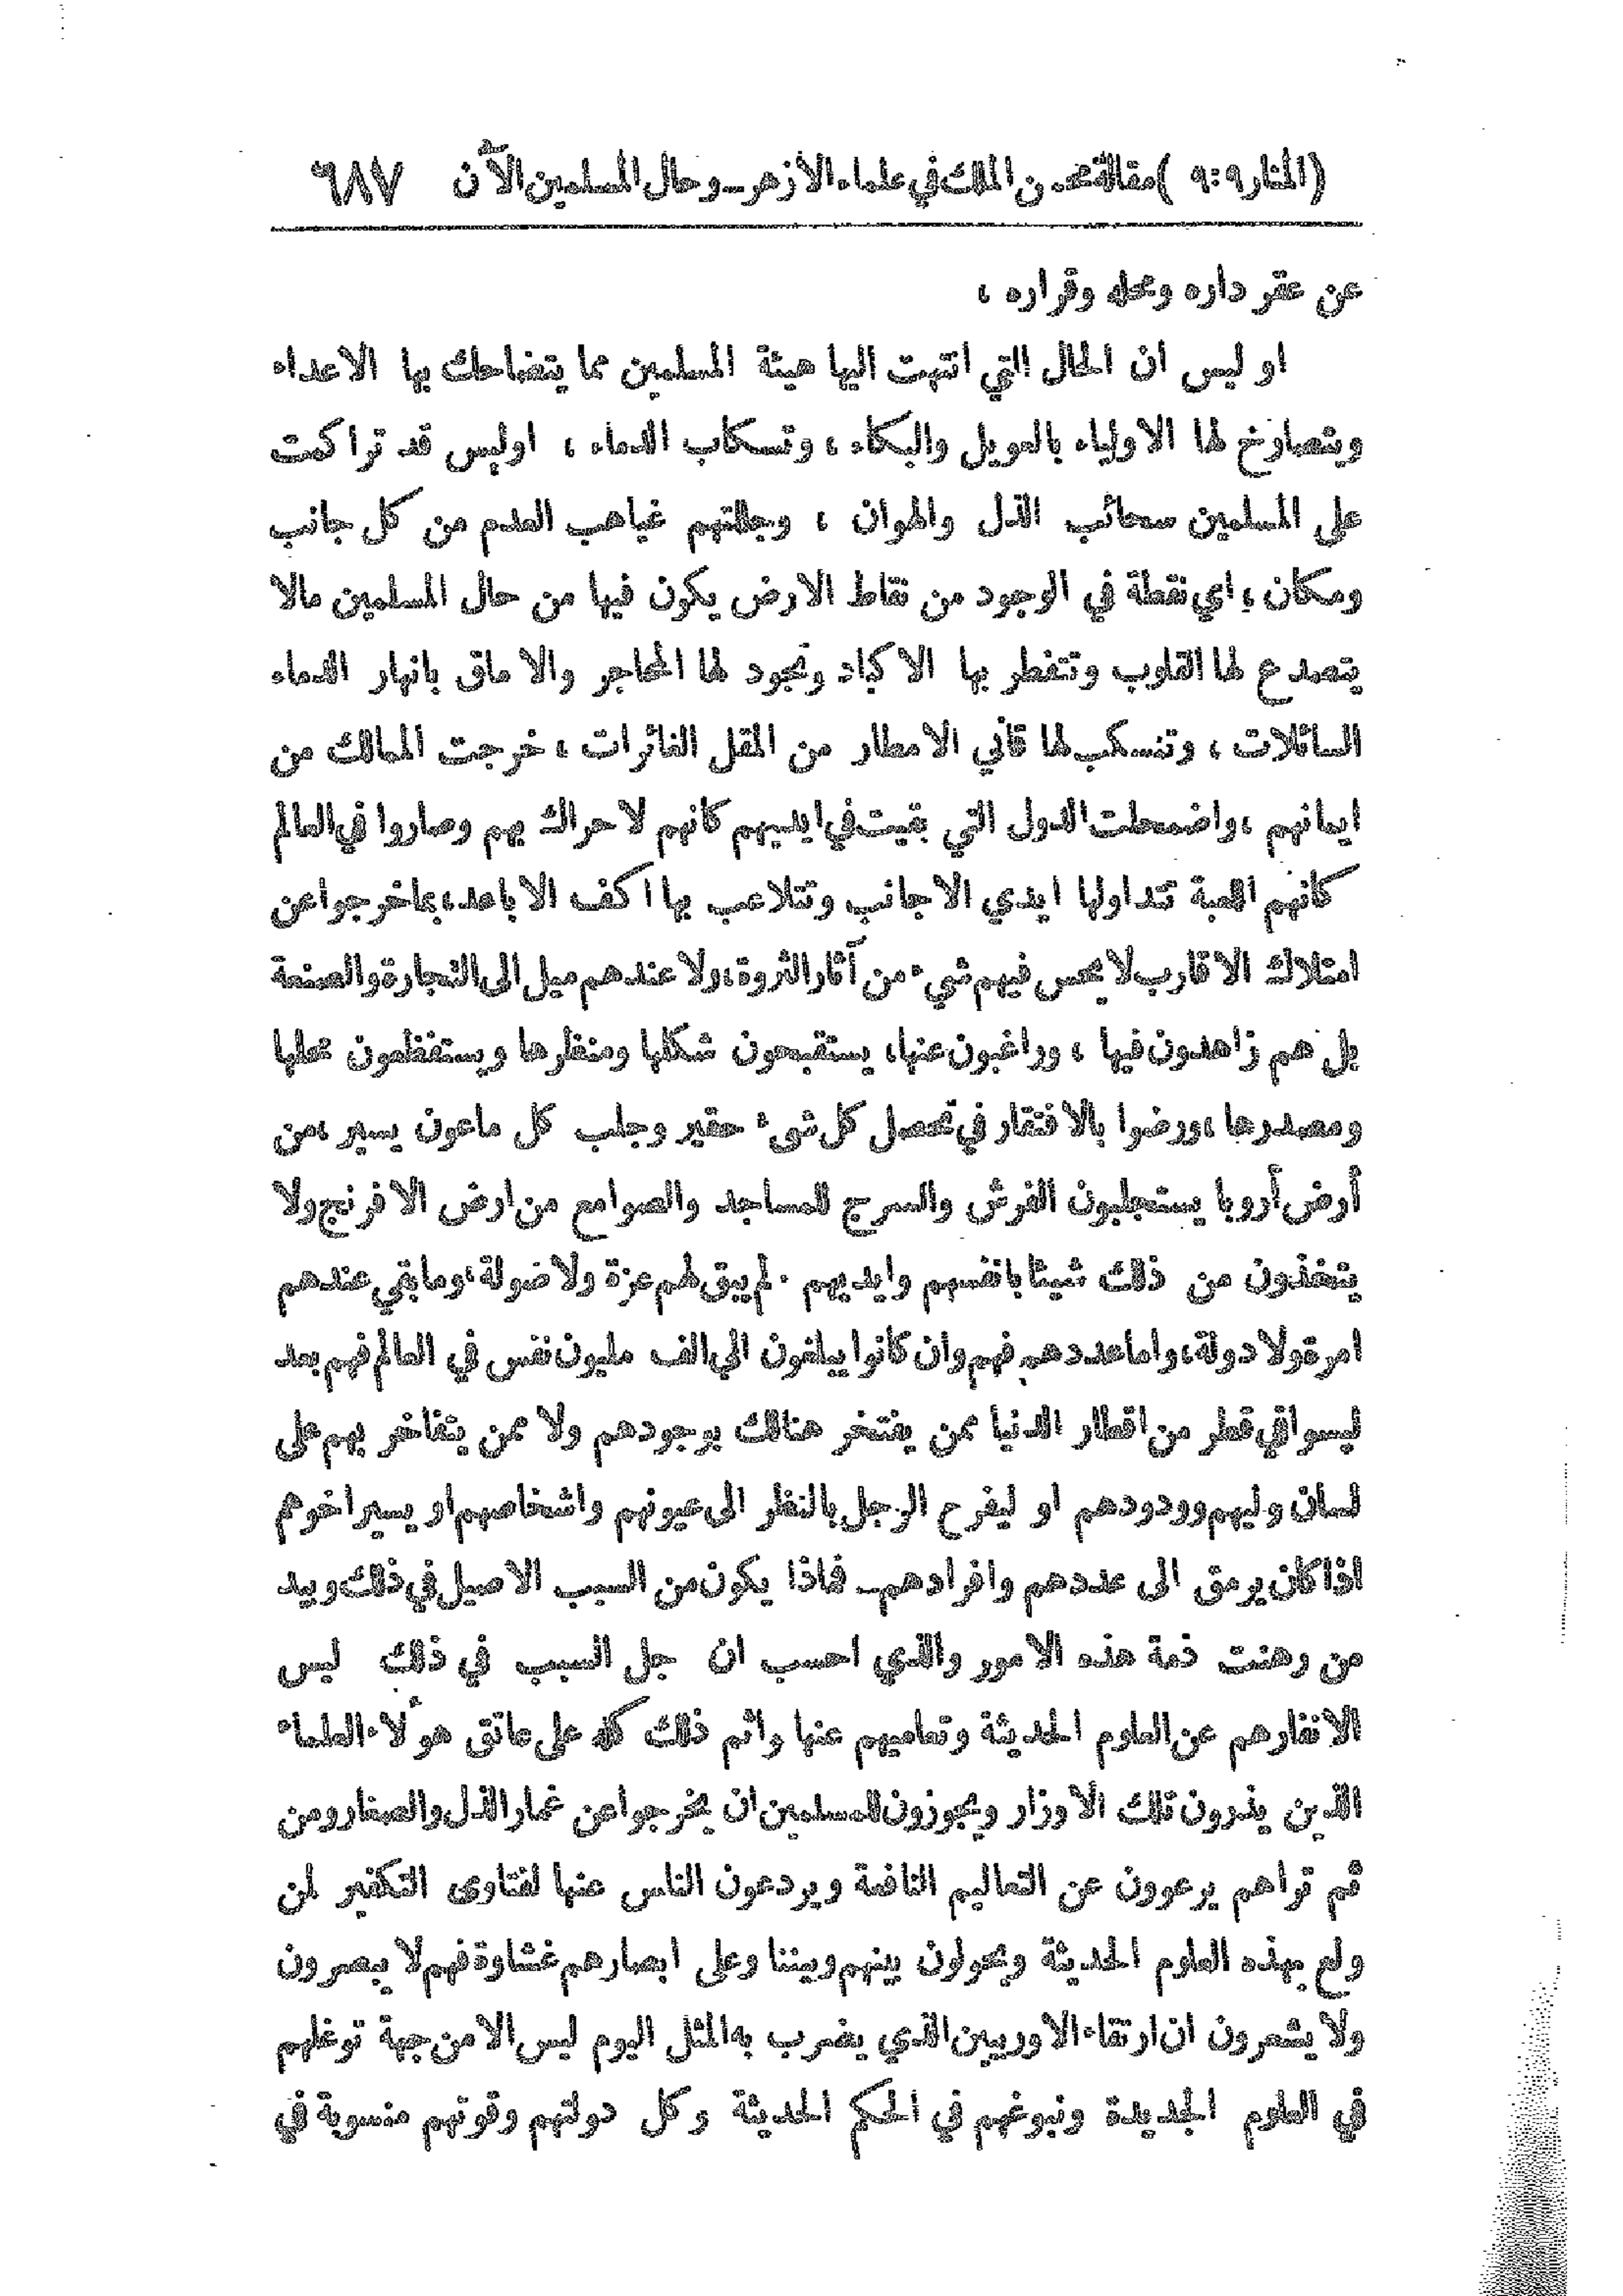 (المنار ٩:٩) مقالة محسن الملك في علماء الازهر ـ وحال المسلمين الآن ٦٨٧
عن عقر داره ومحله وقراره ،
او ليس ان الحال التي انتهت اليها هيئة المسلمين مما يتضاحك بها الاعداء
ويتصارخ لها الاولياء بالعويل والبكاء ، وتسكاب الدماء ، اوليس قد تراكمت
على المسلمين سحائب الذل والهوان ، وجللتهم غياهب العدم من كل جانب
ومكان ، اي نقطة في الوجود من نقاط الارض يكون فيها من حال المسلمين مالا
يتصدع لها القلوب وتتفطر بها الاكباد وتجود لها المحاجر والاماق بانهار الدماء
السائلات ، وتنسكب لها قاني الامطار من المقل الغائرات ، خرجت الممالك من
ايمانهم ، واضمحلت الدول التي بقيت في ايديهم كانهم لا حراك بهم وصاروا في العالم
كانهم العبة تتداولها ايدي الاجانب وتتلاعب بها اكف الاباعد ، بما خرجوا عن
امتلاك الاقارب لا يحس فيهم شيء من آثار الثروة ، ولا عندهم ميل الى التجارة والصنعة
بل هم زاهدون فيها ، وراغبون عنها ، يستقبحون شكلها ومنظرها ويستفظعون محلها
ومصدرها ، ورضوا بالافتقار في تحصل كل شيء حقير وجلب كل ماعون يسير ، من
أرض أروبا يستجلبون الفرش والسرج للمساجد والصوامع من ارض الافرنج ولا
يتخذون من ذلك شيئا بانفسهم وايديهم . لم يبق لهم عزة ولا ضولة ، وما بقي عندهم
امرة ولا دولة ، واما عددهم فهم وان كانوا يبلغون الى الف مليون نفس في العالم فهم بعد
ليسوا في قطر من اقطار الدنيا بمن يفتخر هنالك بوجودهم ولا ممن يتفاخر بهم على
لسان وليهم وودودهم او ليفرح الرجل بالنظر الى عيونهم واشخاصهم او يسير اخوهم
اذا كان يرمق الى عددهم وافرادهم ـ فماذا يكون من السبب الاصيل في ذلك وبيد
من رهنت ذمة هذه الامور والذي احسب ان جل السبب في ذلك ليس
الا نفارهم عن العلوم الحديثة وتعاميهم عنها واثم ذلك كله على عاتق هؤلاء العلماء
الذين يذرون تلك الاوزار ويجوزون للمسلمين ان يخرجوا عن غمار الذل والصغار ومن
ثم تراهم يرعوون عن التعاليم النافعة ويردعون الناس عنها لفتاوى التكفير لمن
ولع بهذه العلوم الحديثة ويحولون بينهم وبيننا وعلى ابصارهم غشاوة فهم لا يبصرون
ولا يشعرون ان ارتقاء الاوربيين الذي يضرب به المثل اليوم ليس الا من جهة توغلهم
في العلوم الجديدة ونبوغهم في الحكم الحديثة وكل دولتهم وقوتهم منسوبة في